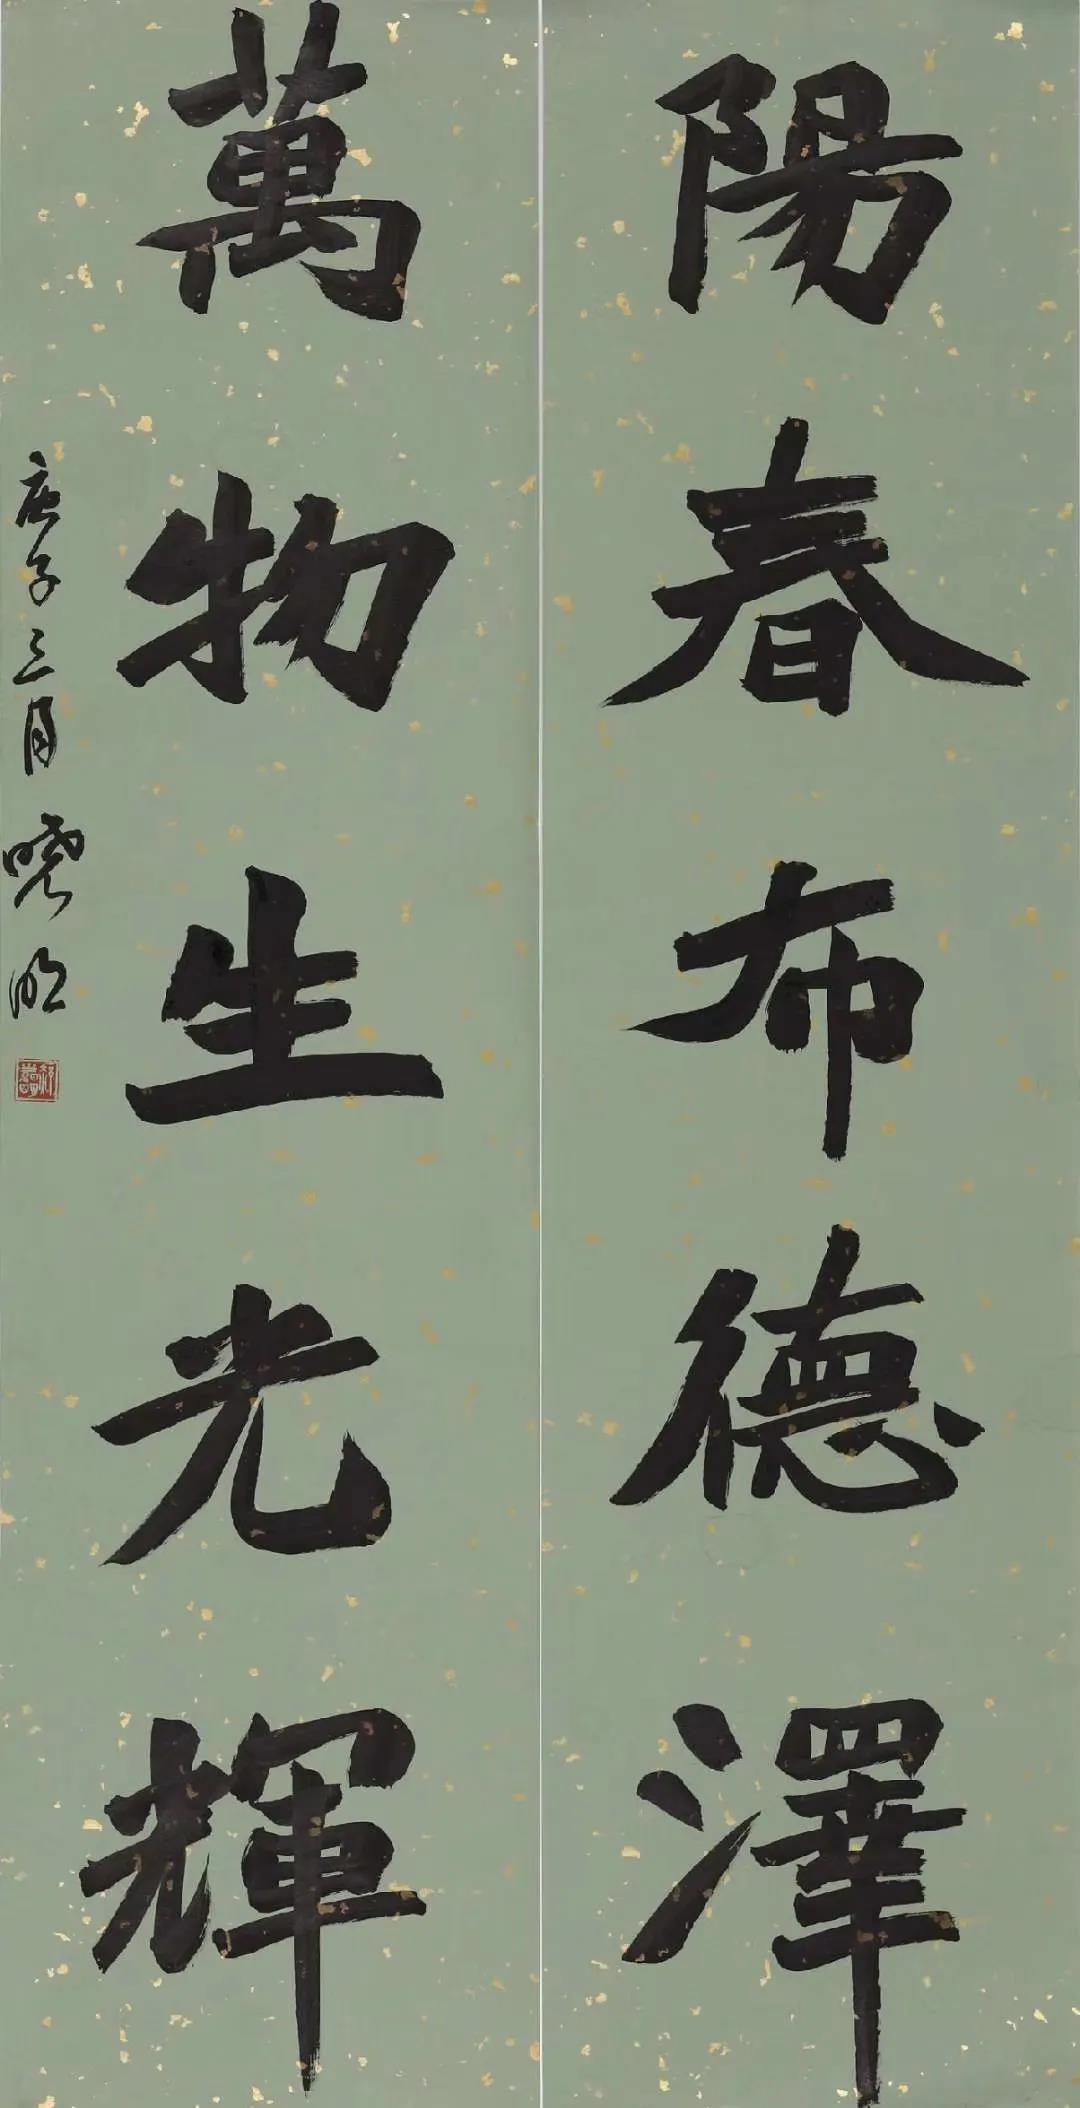 陽春布德澤
萬物生光輝
庚子三月曉明